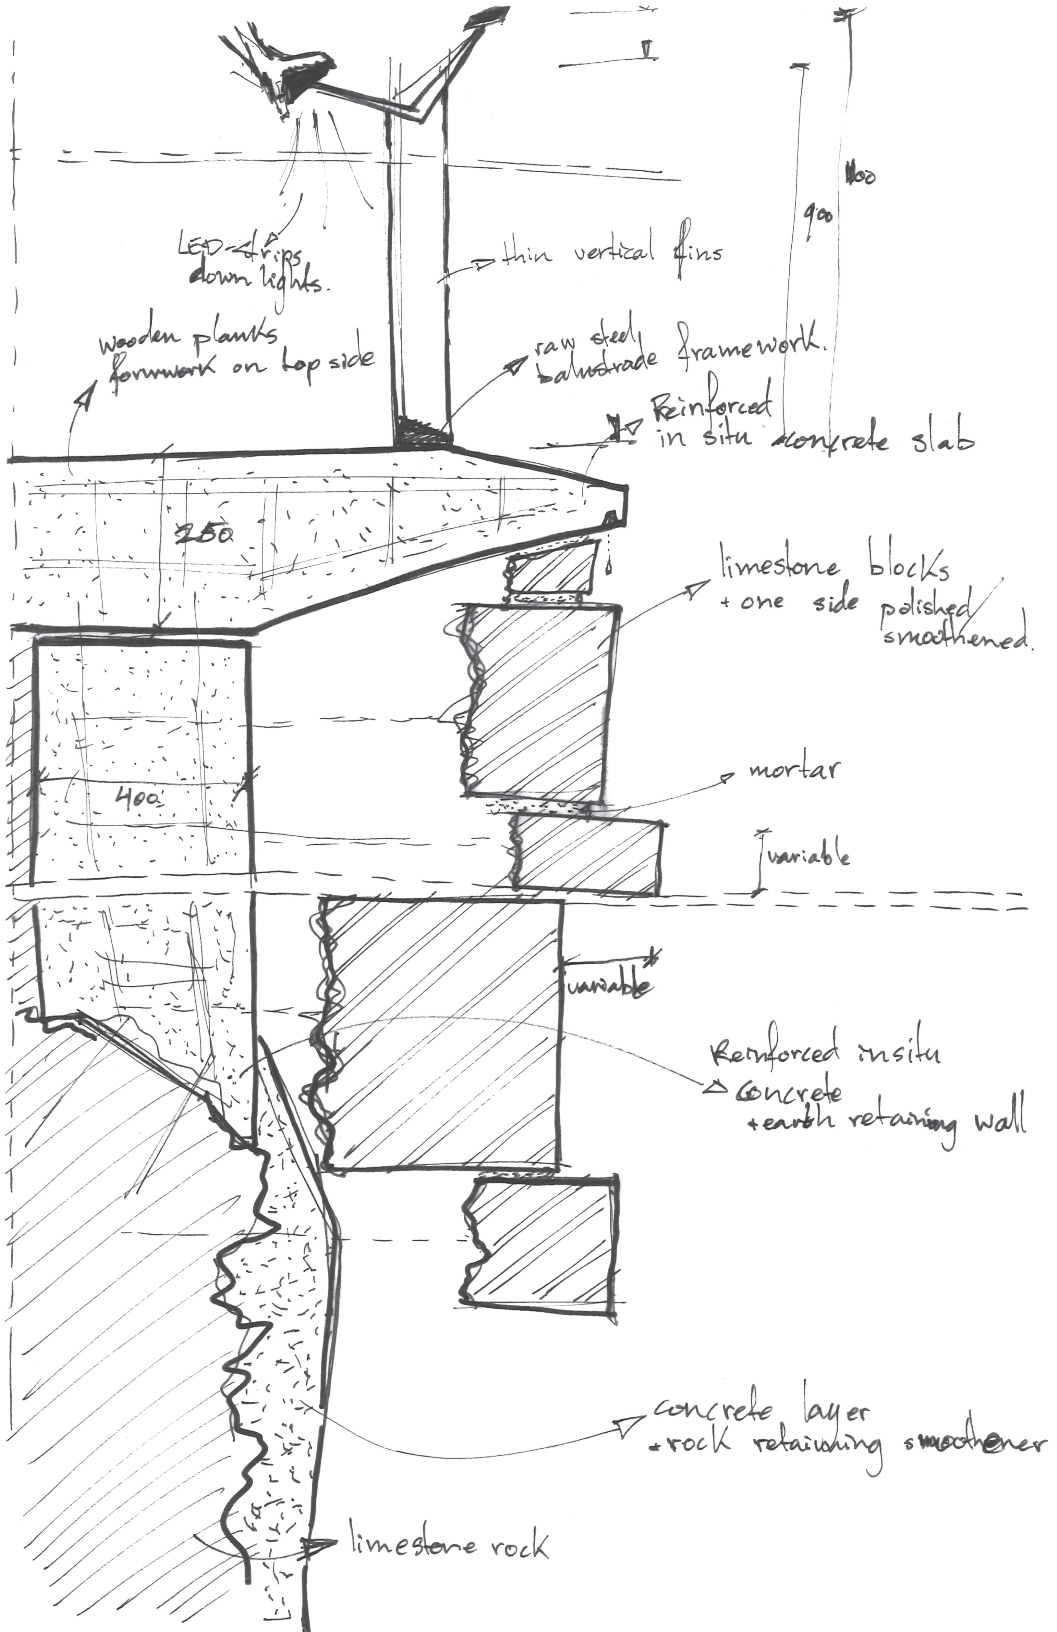 1100
900
LED-strips
down lights.
thin vertical fins
wooden planks
formwork on top side
raw steel
balustrade framework.
Reinforced
in situ concrete slab
250
limestone blocks
+ one side polished/
smoothened.
mortar
400
variable
variable
Reinforced insitu
concrete
+earth retaining wall
concrete layer
+rock retaining smoothener
limestone rock